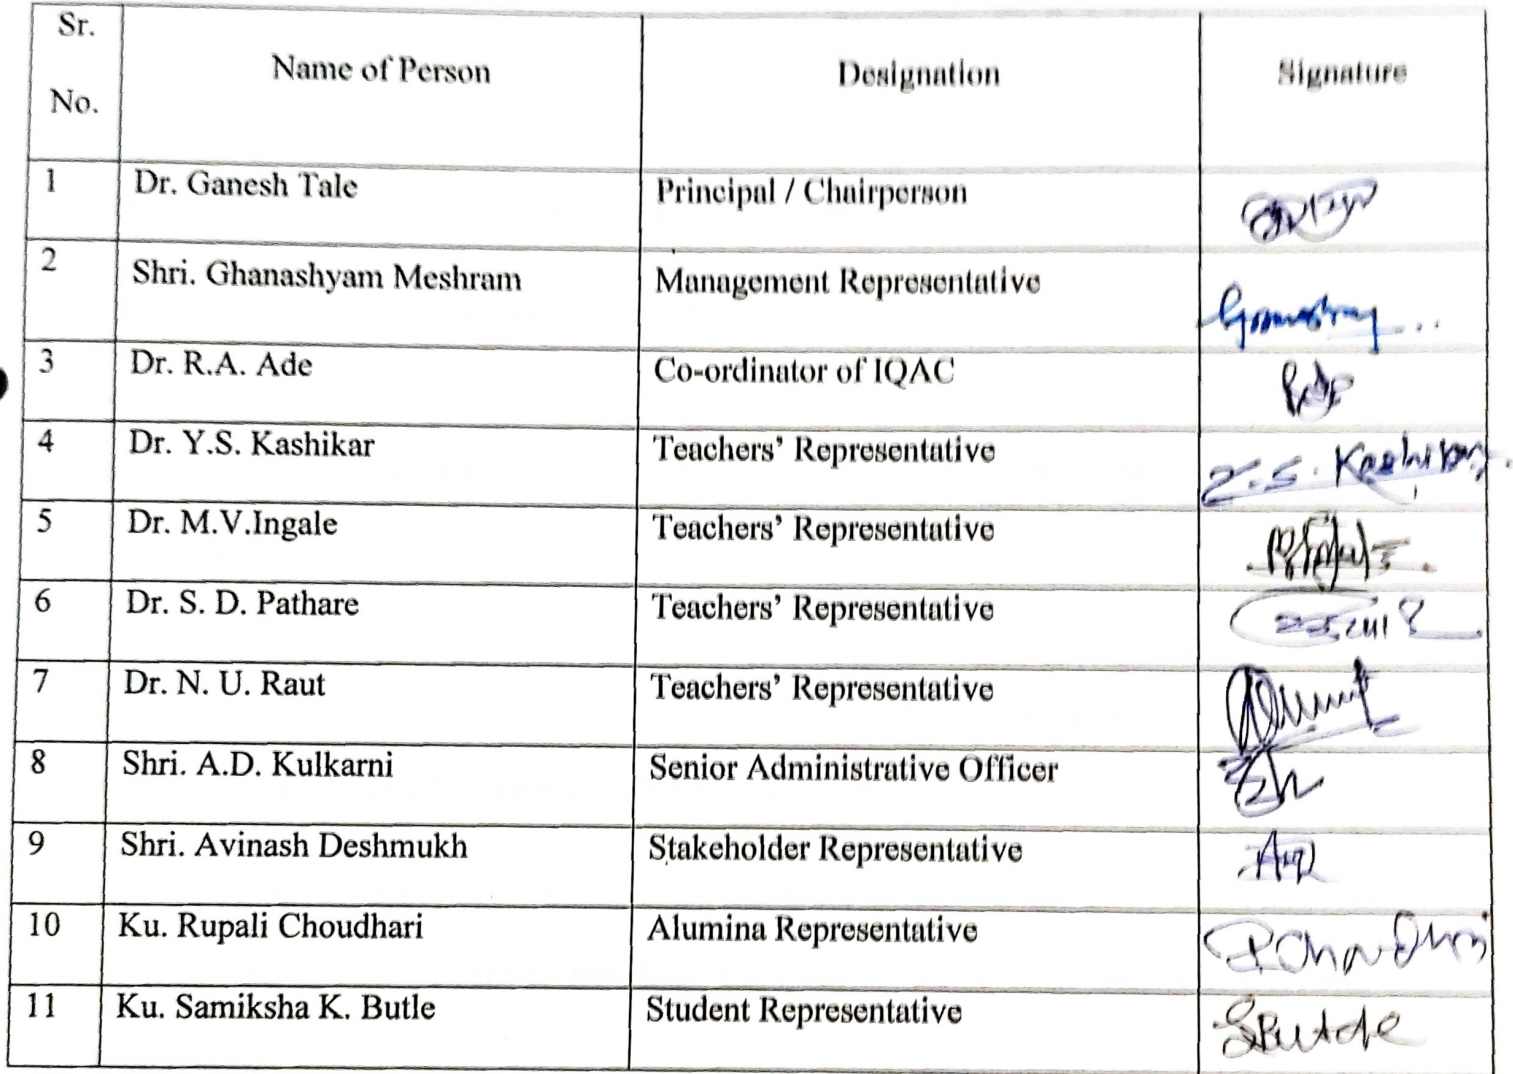 Sr. No. Name of Person Designation Signature
1 Dr. Ganesh Tale Principal / Chairperson
2 Shri. Ghanashyam Meshram Management Representative
3 Dr. R.A. Ade Co-ordinator of IQAC
4 Dr. Y.S. Kashikar Teachers' Representative Y.S. Kashikar.
5 Dr. M.V.Ingale Teachers' Representative
6 Dr. S. D. Pathare Teachers' Representative
7 Dr. N. U. Raut Teachers' Representative
8 Shri. A.D. Kulkarni Senior Administrative Officer
9 Shri. Avinash Deshmukh Stakeholder Representative
10 Ku. Rupali Choudhari Alumina Representative
11 Ku. Samiksha K. Butle Student Representative